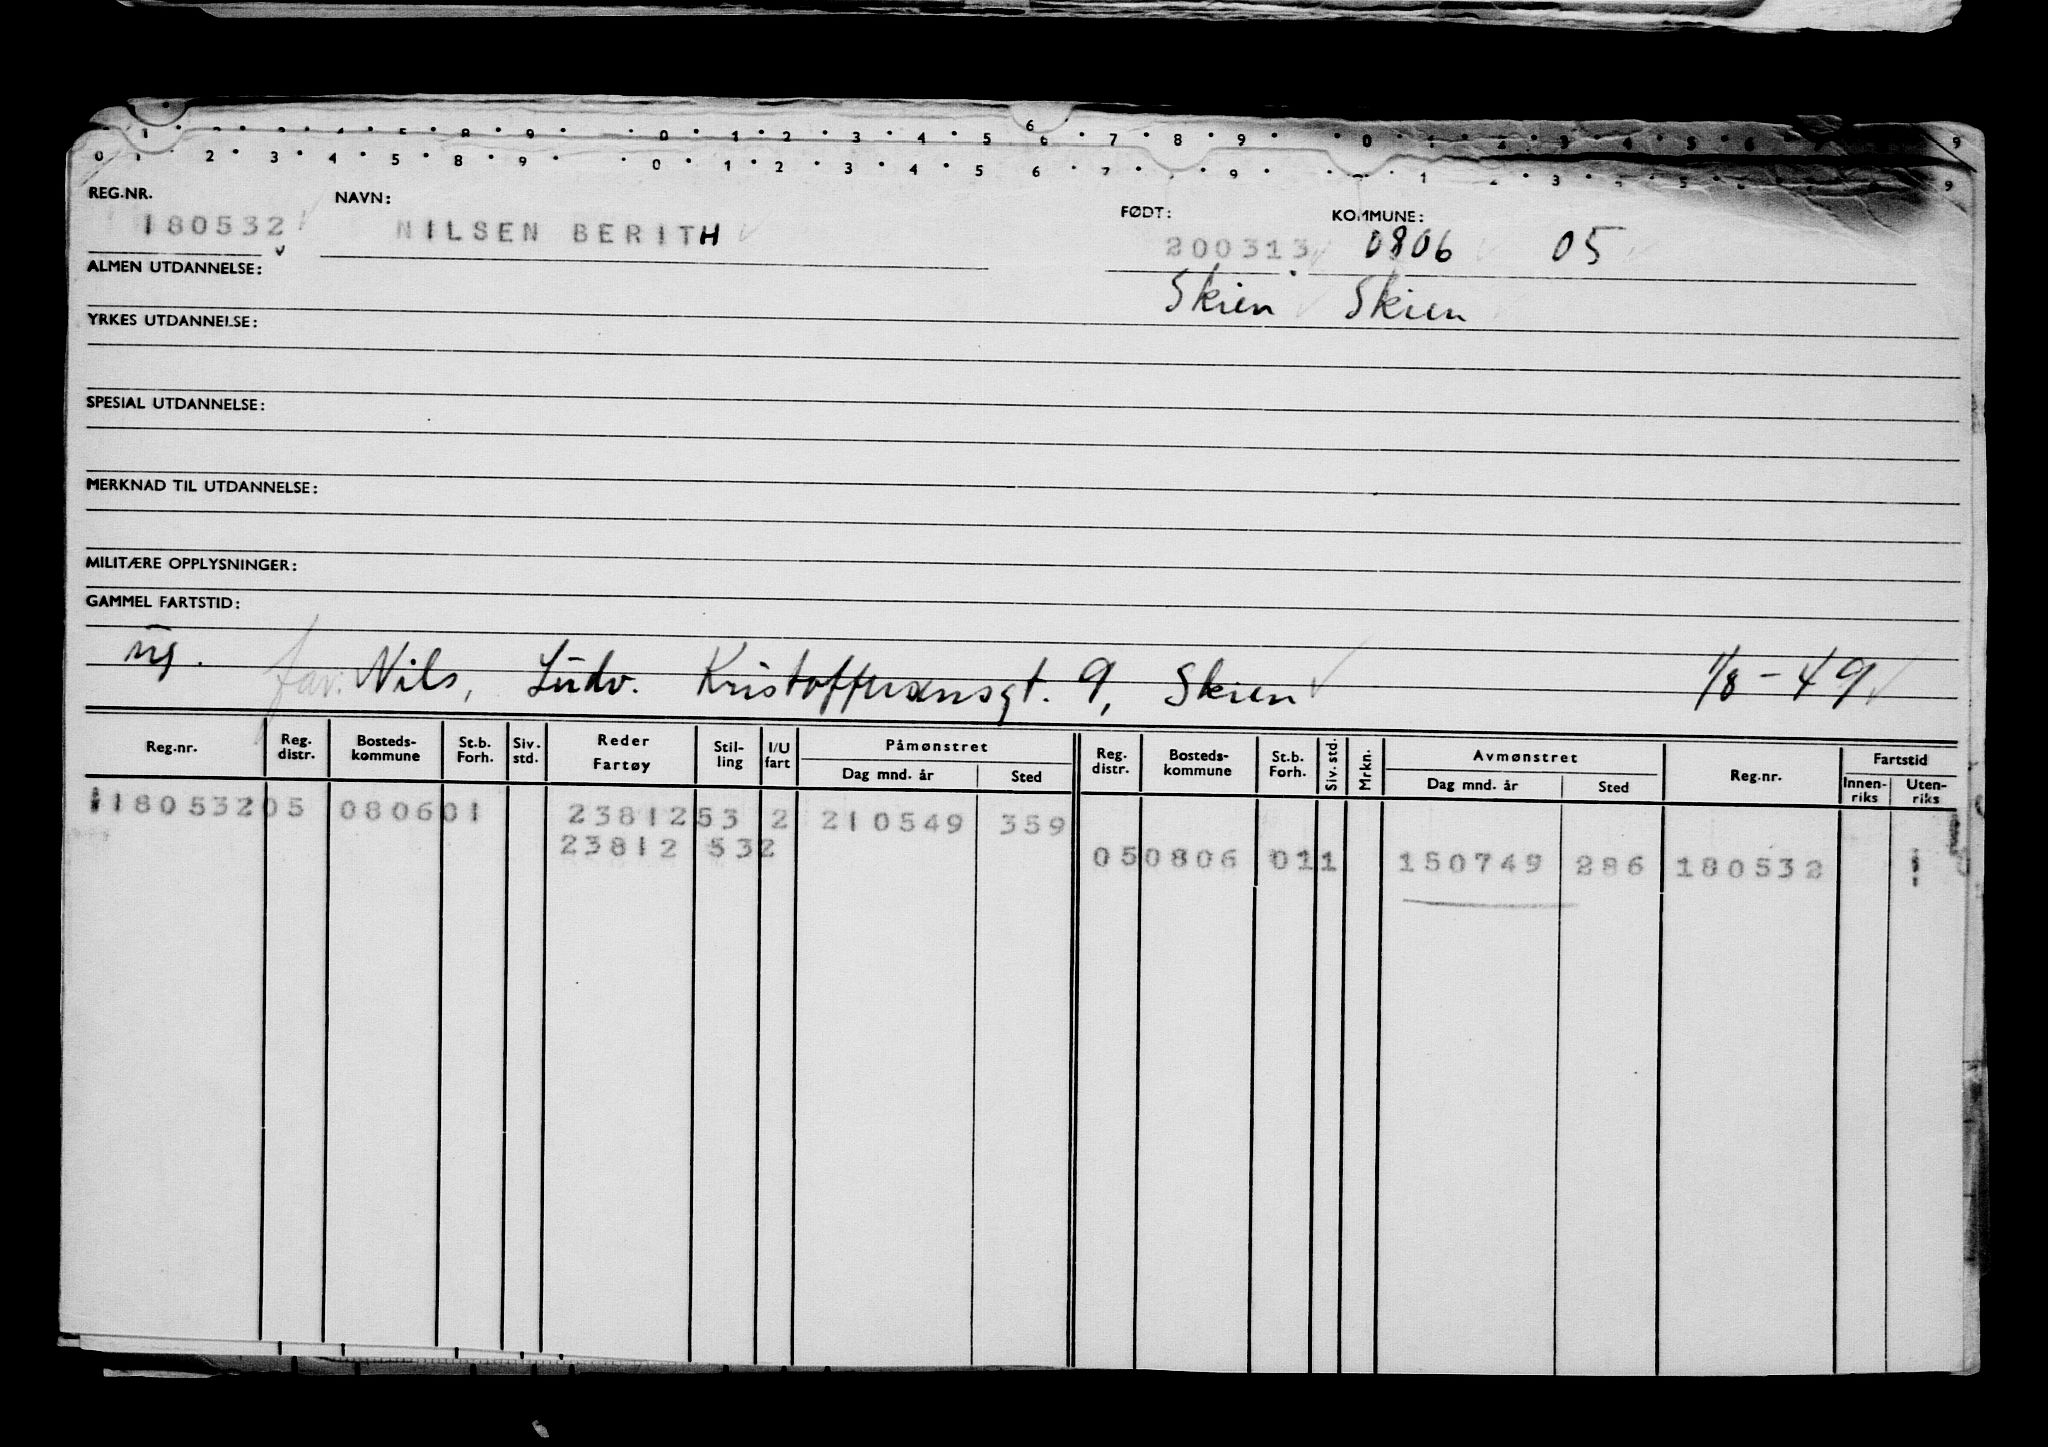 0 1 2 3 4 5 8 9 0 1 2 3 4 5 6 7 9 1 3 5 9
REG.NR. NAVN: FØDT: KOMMUNE:
180532 NILSEN BERITH 200313 0806 05
ALMEN UTDANNELSE: Skien Skien
YRKES UTDANNELSE:
SPESIAL UTDANNELSE:
MERKNAD TIL UTDANNELSE:
MILITÆRE OPPLYSNINGER:
GAMMEL FARTSTID:
ug. far: Nils, Ludv. Kristoffersensgt. 9, Skien 1/8 - 49
Reg.nr. Reg. distr. Bosteds-kommune St.b. Forh. Siv. std. Reder Fartøy Stil-ling I/U fart Påmønstret Dag mnd. år Sted Reg. distr. Bosteds-kommune St.b. Forh. Siv. std. Mrkn. Avmønstret Dag mnd. år Sted Reg.nr. Fartstid Innen-riks Uten-riks
1180532 05 0806 01 23812 53 2 210549 359
23812 532 05 0806 011 150749 286 180532 1